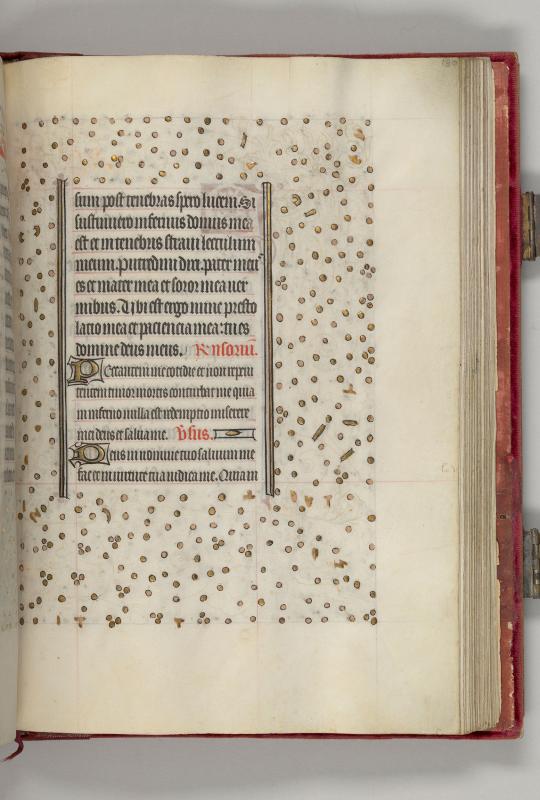 sum post tenebras spero lucem. Si
sustinuero infernus domus mea
est et in tenebris straui lectulum
meum. putredini dixi. pater meus
es et mater mea et soror mea ver
mibus. Vbi est ergo nunc presto
latio mea et paciencia mea: tu es
domine deus meus. Responsorium.
Peccantem me cotidie et non repeni
tentem timor mortis conturbat me quia
in inferno nulla est redemptio miserere
mei deus et salua me. Versus.
Deus in nomine tuo saluum me
fac et in virtute tua iudica me. Quiam